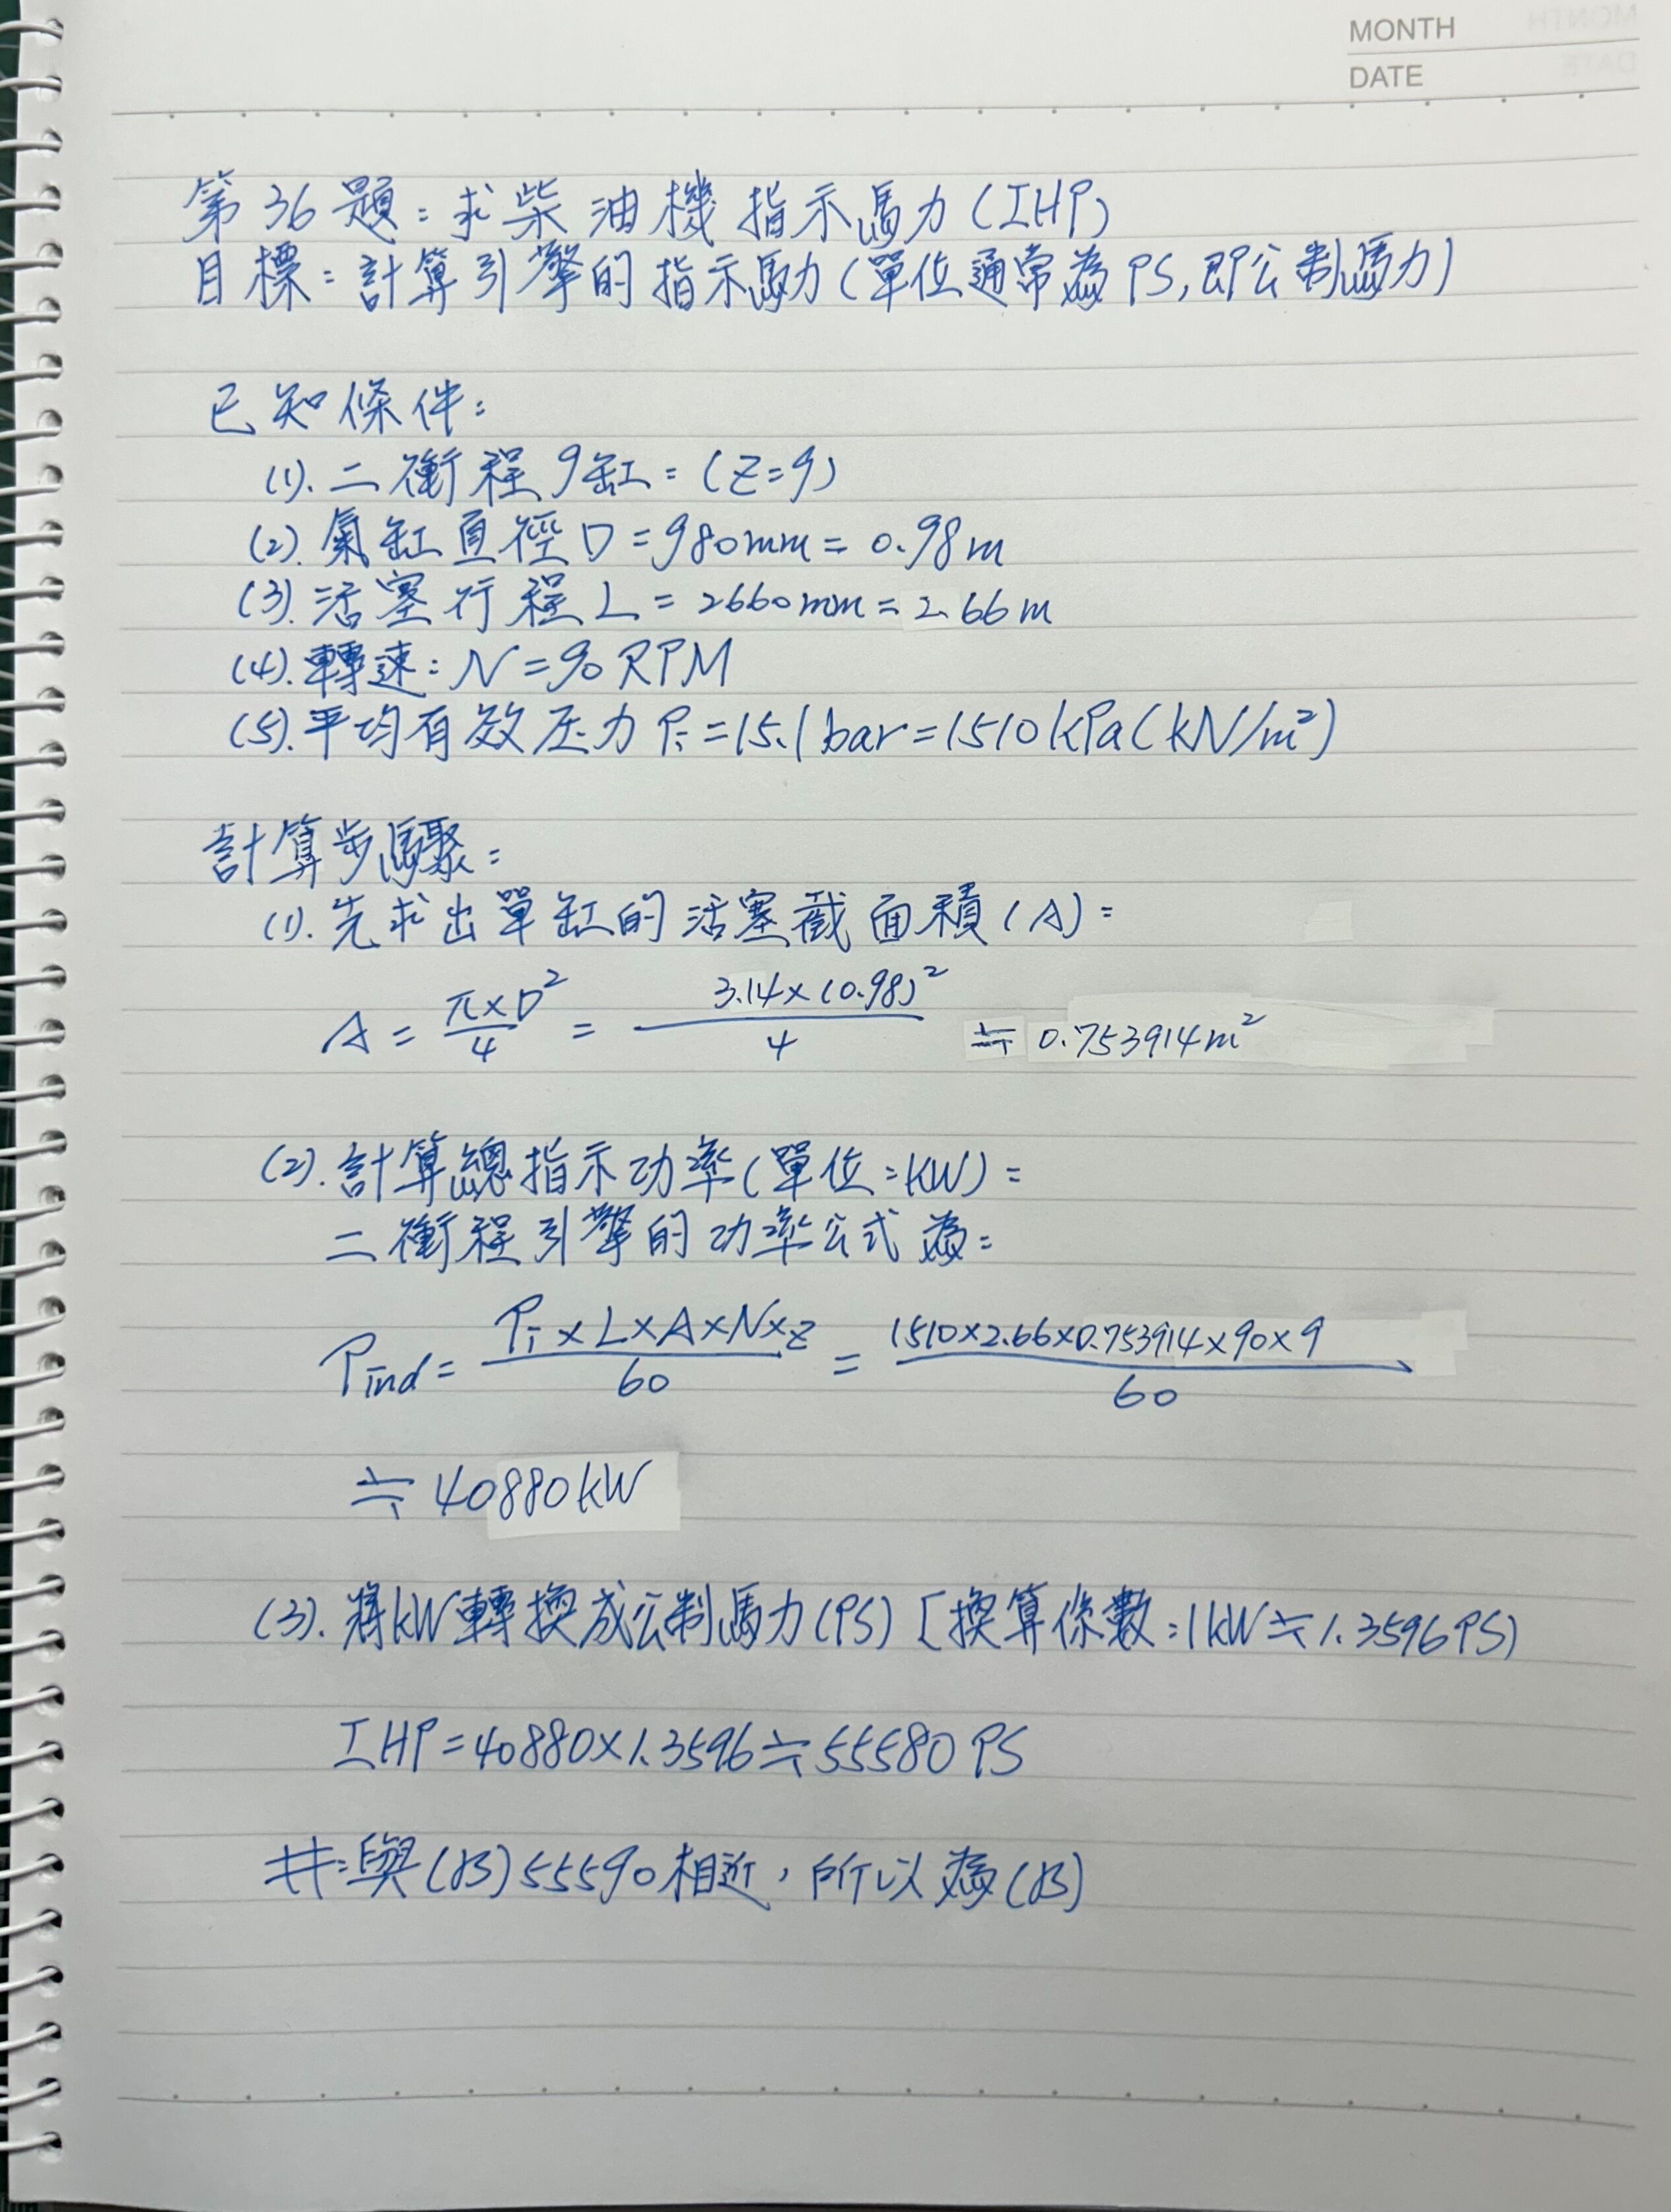 MONTH
DATE
第36題:求柴油機指示馬力(IHP)
目標:計算引擎的指示馬力(單位通常為PS,即公制馬力)
已知條件:
(1).二衝程9缸:(Z=9)
(2).氣缸直徑D=980mm=0.98m
(3).活塞行程L=2660mm=2.66m
(4).轉速:N=90RPM
(5).平均有效压力Pi=15.1bar=1510kPa(kN/m²)
計算步驟:
(1).先求出單缸的活塞截面積(A):
A=π×D²/4=3.14×(0.98)²/4≒0.753914m²
(2).計算總指示功率(單位:kW):
二衝程引擎的功率公式為:
Pind=Pi×L×A×N×z/60=1510×2.66×0.753914×90×9/60
≒40880kW
(3).將kW轉換成公制馬力(PS)[換算係數:1kW≒1.3596PS)
IHP=40880×1.3596≒55580PS
#:與(B)55590相近,所以為(B)